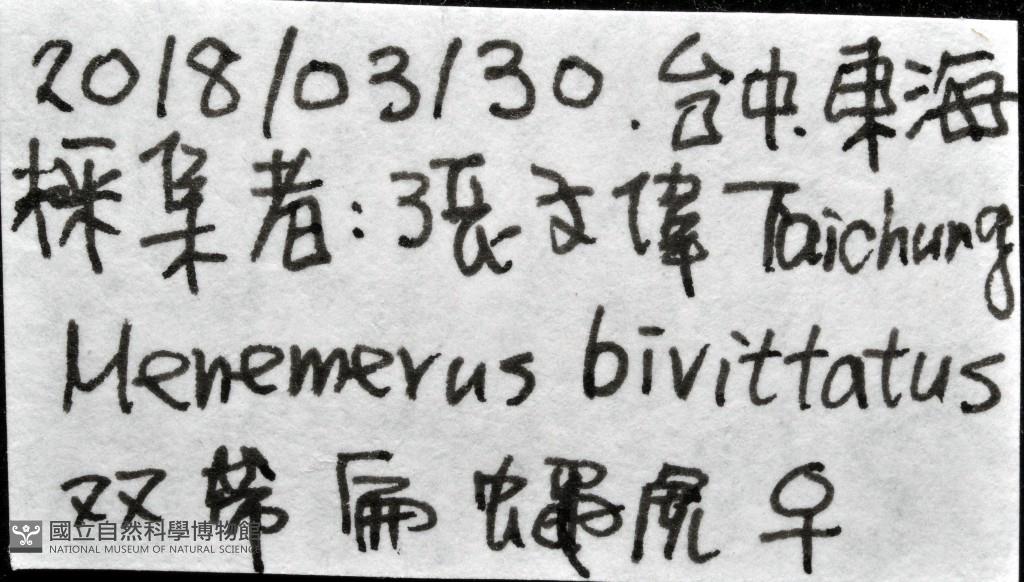 2018/03/30.台中.東海
採集者:張文偉 Taichung
Menemerus bivittatus
双帶扁蠅虎♀
國立自然科學博物館
NATIONAL MUSEUM OF NATURAL SCIENCE